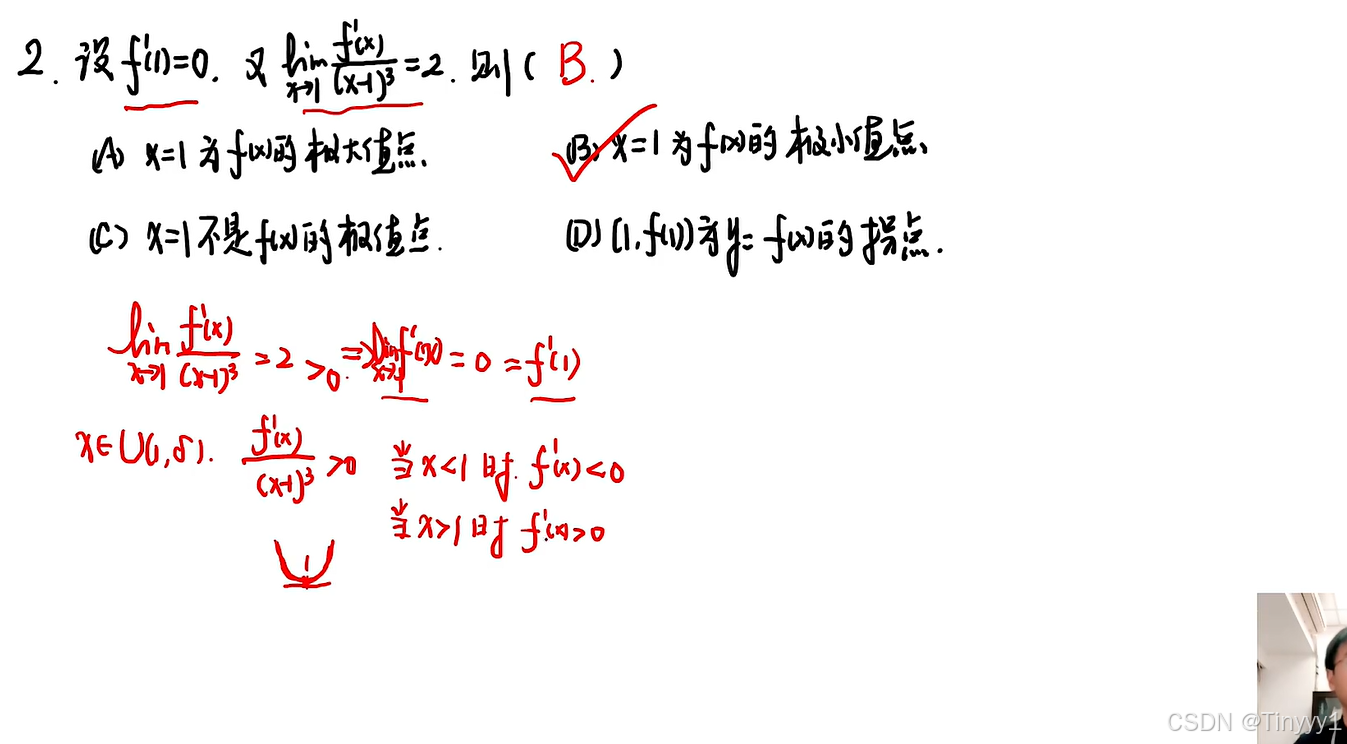 2. 设 f'(1)=0. 又 lim_{x→1} f'(x)/(x-1)³ = 2. 则 ( B. )
(A) x=1 为 f(x) 的极大值点. (B) x=1 为 f(x) 的极小值点.
(C) x=1 不是 f(x) 的极值点. (D) (1, f(1)) 为 y= f(x) 的拐点.
lim_{x→1} f'(x)/(x-1)³ = 2 >0. ⇒ lim_{x→1} f'(x) = 0 = f'(1)
x∈U(1,δ). f'(x)/(x-1)³ >0 当 x<1 时. f'(x)<0
当 x>1 时 f'(x)>0
1
CSDN @Tinyyy1